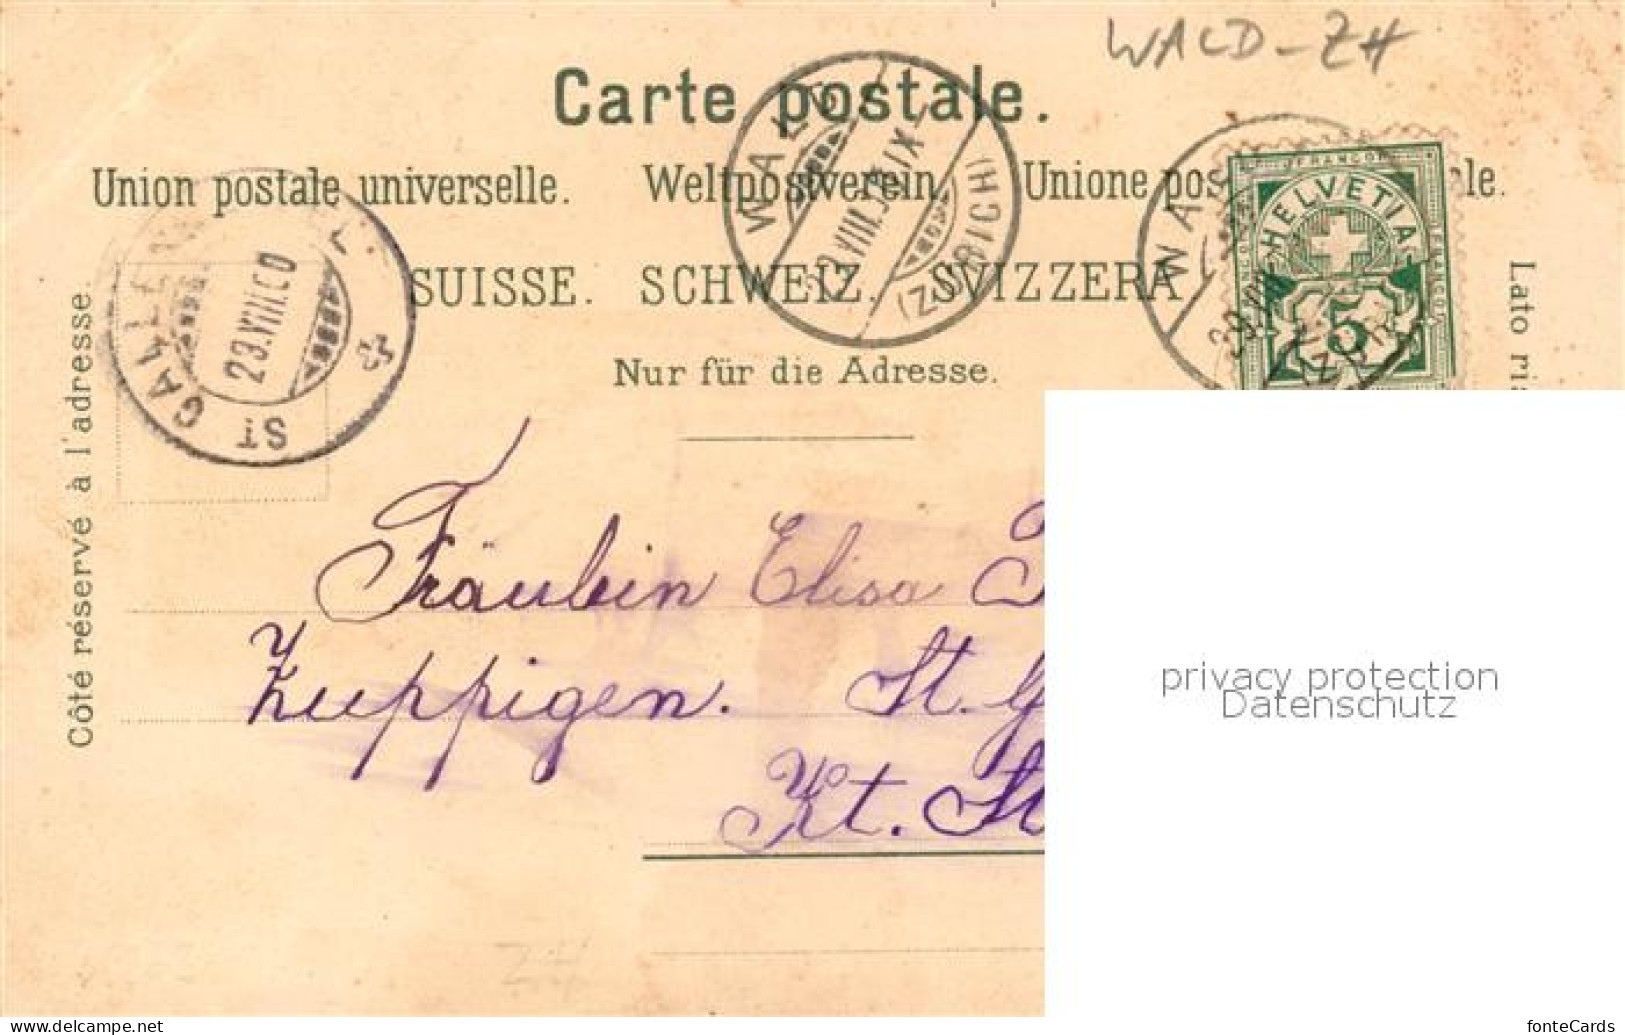 WALD-ZH
Carte postale.
Union postale universelle. Weltpostverein. Unione pos le.
SUISSE. SCHWEIZ. SVIZZERA
Nur für die Adresse.
Côté réservé à l'adresse.
Lato ris
ST GALLEN
29.VIII.00
WALD
29.VIII. IX-
(ZÜRICH)
WA
29.VIII
HELVETIA
5
Fräulein Elisa
Zuppigen. St. G
Kt. St
privacy protection
Datenschutz
fonteCards